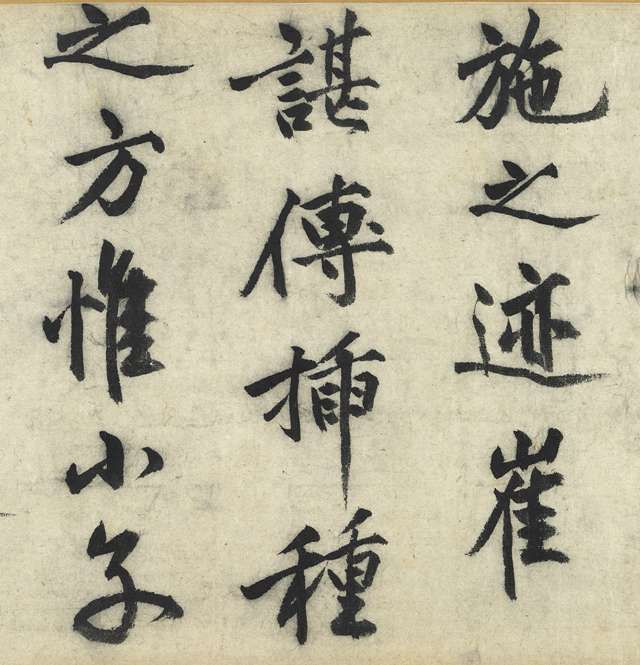 施之迹崔
諶傳插種
之方惟小子